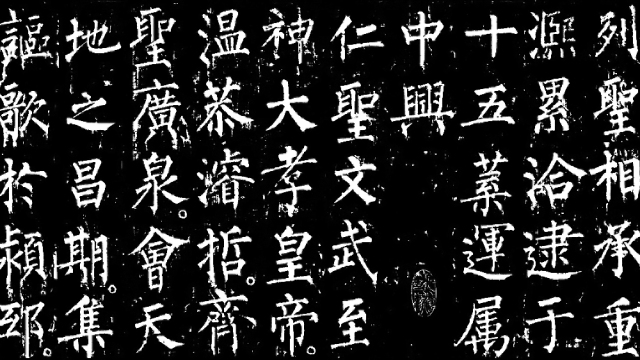 列聖相承重
凞累洽逮于
十五葉運属
中興
仁聖文武至
神大孝皇帝。
温恭濬哲。齊
聖廣泉。會天
地之昌期。集
謳歌於潁邸。